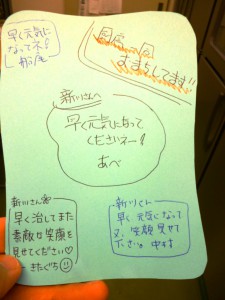 早く元気に
なってネ!
船尾
まってます!!
新川さんへ
早く元気になって
くださいネー!
あべ
新川さん
早く治してまた
素敵な笑顔を
見せてください♡
きたぐち
新川くん
早く元気になって
又、笑顔見せて
下さいネ 中村